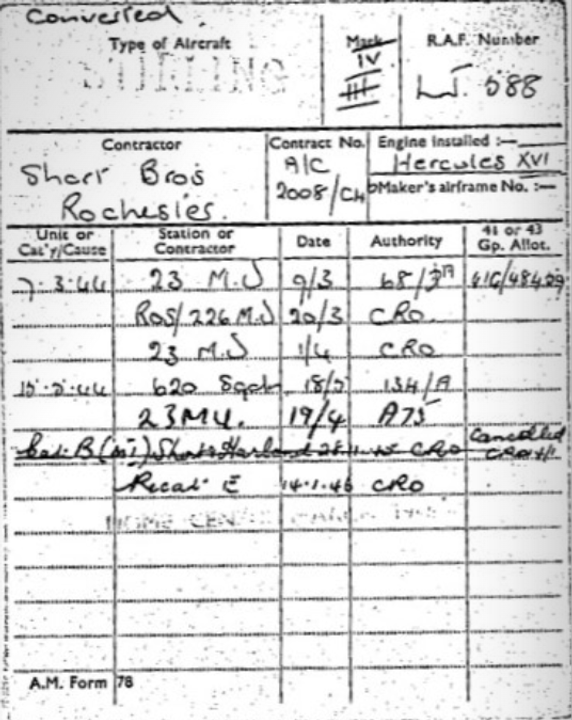 Converted
Type of Aircraft Mark R.A.F. Number
STIRLING IV III LJ. 588
Contractor Contract No. Engine installed :—
Short Bros A/C Hercules XVI
Rochester. 2008/C4 Maker's airframe No. :—
Unit or Cat'y/Cause Station or Contractor Date Authority 41 or 43 Gp. Allot.
7.3.44 23 M.U 9/3 41G/48409
ROS/226 M.U 20/3 CRO
23 M.U 1/4 CRO
620 Sqdn 18/5 134/A
23 MU. 19/4 A75
Cat: B (MI) Shorts Harland 28.11.45 CRO Cancelled
Recat E 14.1.46 CRO
HOME CEN
A.M. Form 78